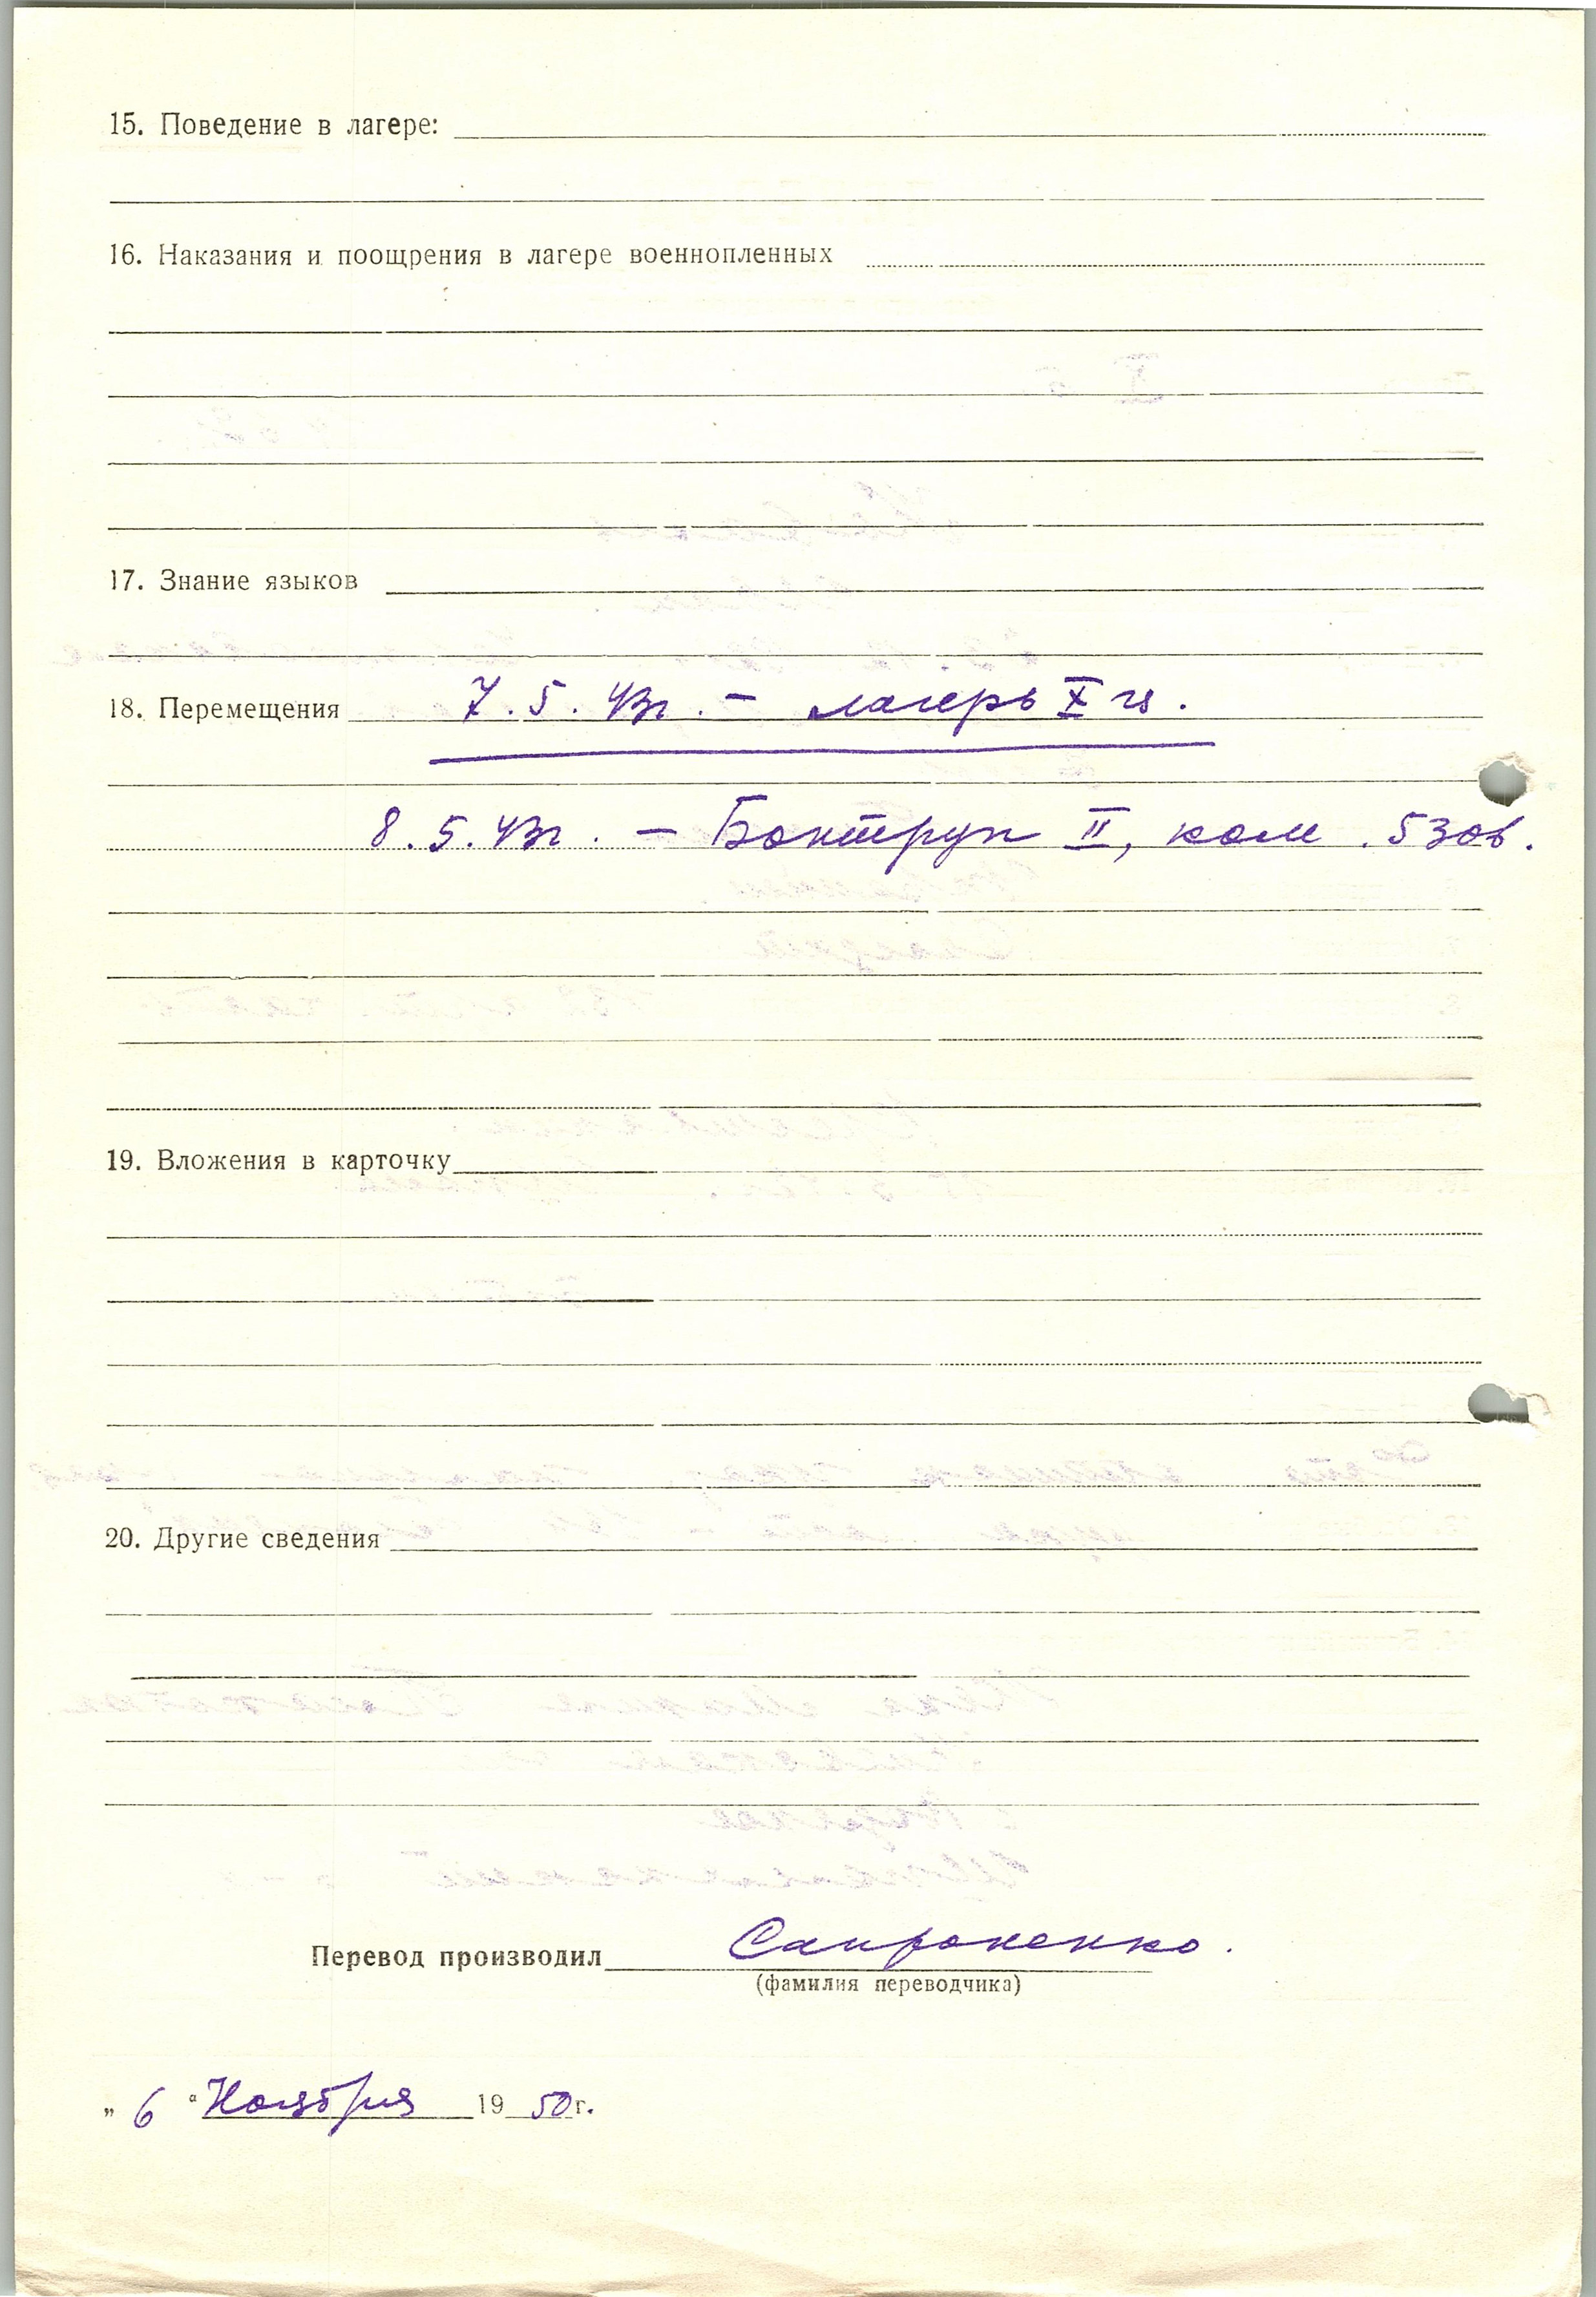 15. Поведение в лагере:
16. Наказания и поощрения в лагере военнопленных
17. Знание языков
18. Перемещения 7.5.43г. – лагерь X
8.5.43г. – Бонтруп II, ком. 530в.
19. Вложения в карточку
20. Другие сведения
Перевод производил Сапроненко.
(фамилия переводчика)
„ 6 “ Ноября 19 50 г.